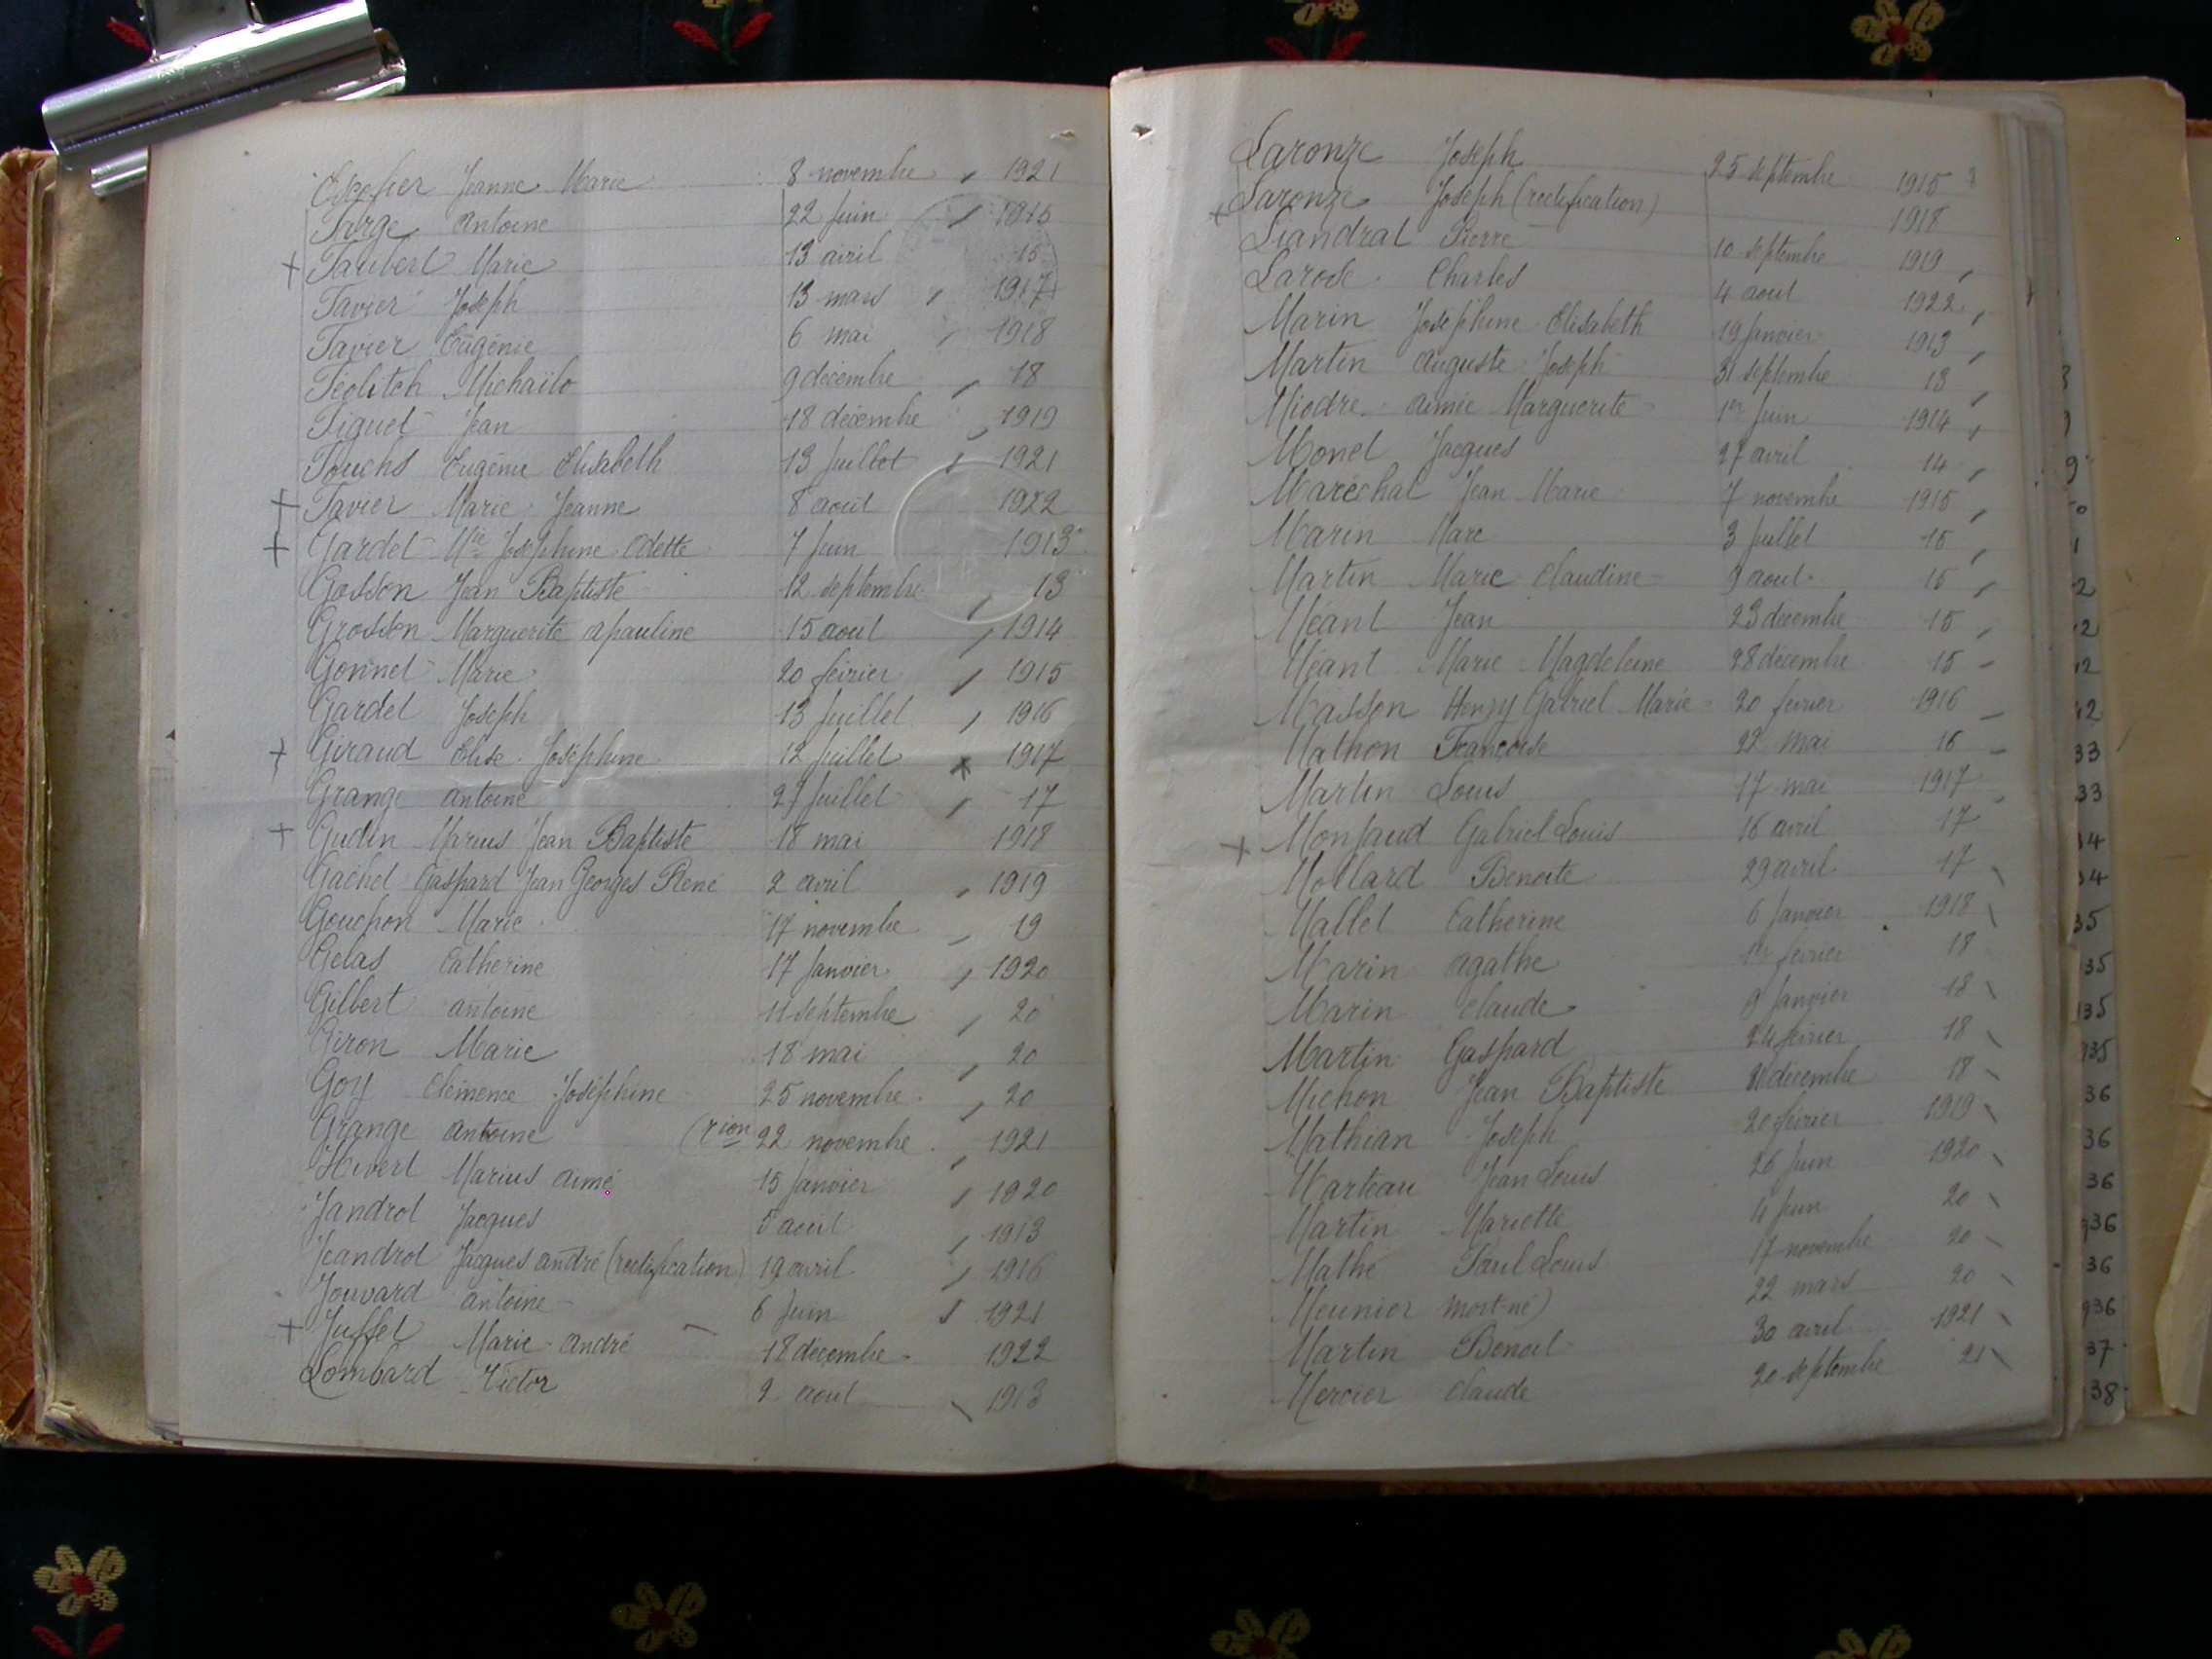 Jeanne Marie 8 novembre 1921
Farge Antoine 22 Juin 1915
+ Faubert Marie 13 avril 15
Favier Joseph 13 mars 1917
Favier Eugénie 6 mai 1918
Féolitch Michaïlo 9 décembre 18
Figuet Jean 18 décembre 1919
Fouchs Eugénie Elisabeth 13 Juillet 1921
+ Favier Marie Jeanne 8 août 1922
+ Gardet Mie Joséphine Odette 7 Juin 1913
Gosson Jean Baptiste 12 septembre 13
Grosson Marguerite apauline 15 aout 1914
Gonnet Marie 20 février 1915
Gardet Joseph 13 Juillet 1916
+ Giraud Elise Joséphine 12 Juillet x 1917
Grange antoine 27 Juillet 17
+ Gudin Marius Jean Baptiste 18 mai 1918
Gachet Gaspard Jean Georges René 2 avril 1919
Gouchon Marie 17 novembre 19
Gelas Catherine 17 Janvier 1920
Gilbert antoine 11 septembre 20
Giron Marie 18 mai 20
Goy Clémence Joséphine 25 novembre 20
Grange Antoine (rion 22 novembre 1921
Hivert Marius aimé 15 Janvier 1920
Jandrot Jacques 5 aout 1913
Jeandrot Jacques andré (rectification) 19 avril 1916
Jouvard antoine 6 Juin 1921
+ Juffet Marie-André 18 décembre 1922
Lombard Victor 2 aout 1913
Laronze Joseph 25 septembre 1915
+ Laronze Joseph (rectification) 1918
Liandrat Pierre 10 septembre 1919
Larose Charles 4 aout 1922
Marin Joséphine Elisabeth 19 Janvier 1913
Martin Auguste Joseph septembre 13
Miodre aimée Marguerite 1er Juin 1914
Monet Jacques 27 avril 14
Maréchal Jean Marie 7 novembre 1915
Marin Marc 3 Juillet 15
Martin Marie Claudine 9 aout 15
Méant Jean 23 décembre 15
Méant Marie Magdeleine 28 décembre 15
Masson Henry Gabriel Marie 20 février 1916
Mathon Françoise 22 mai 16
Martin Louis 17 mai 1917
+ Monjaud Gabriel Louis 16 avril 17
Mollard Benoite 29 avril 17
Mallet Catherine 6 Janvier 1918
Marin Agathe 1er février 18
Marin Claude 9 Janvier 18
Martin Gaspard 24 février 18
Michon Jean Baptiste décembre 18
Mathian Joseph 20 février 1919
Marteau Jean Louis 26 Juin 1920
Martin Mariette 4 Juin 20
Mathé Paul Louis 17 novembre 20
Meunier mort-né) 22 mars 20
Martin Benoit 30 avril 1921
Mercier Claude 20 septembre 21
33
33
35
35
135
935
36
36
36
936
36
936
37
38